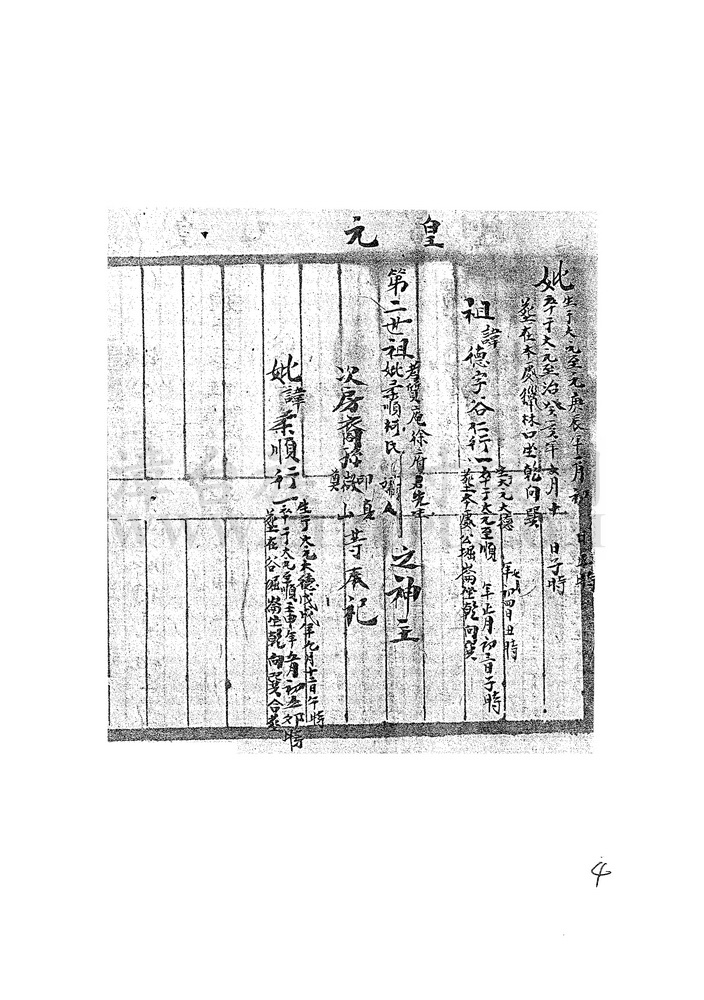 皇元
妣
生于大元至元庚辰年十二月初 日丑時
卒于大元至治癸亥年六月十 日子時
葬在本處 林口坐乾向巽
祖諱德字谷仁行一
生于大元大德 年七月初四日丑時
卒于大元至順 年正月初三日子時
葬在本處公堀崙坐乾向巽
第二世祖
考質庵徐府君先生
妣柔順柯氏 孺人
之神主
次房裔孫
啟山等奉祀
妣諱柔順行一
生于大元大德戊戌年九月十三日午時
卒于大元至順壬申年五月初五卯時
葬在谷堀崙坐乾向巽合葬
4